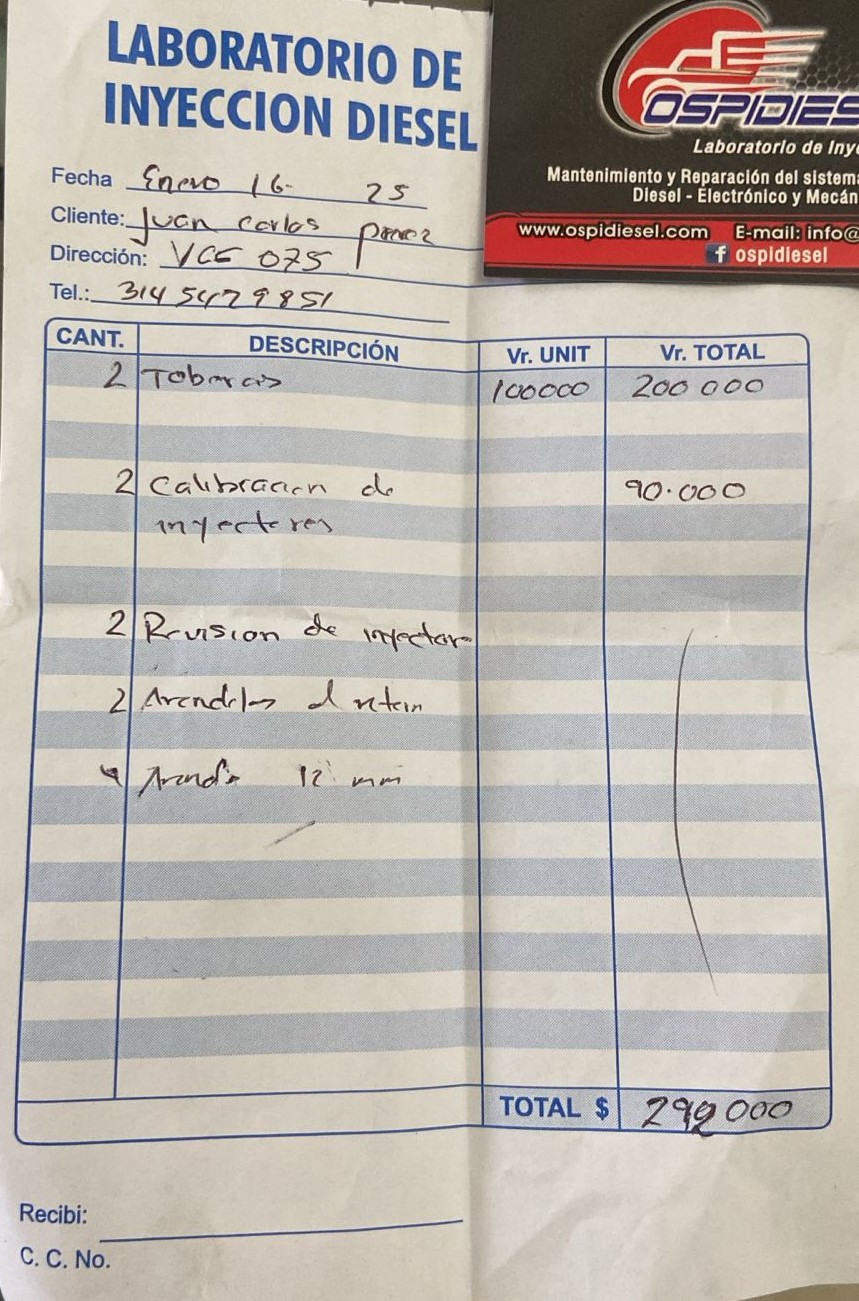 LABORATORIO DE
INYECCION DIESEL
OSPIDIES
Laboratorio de Inye
Mantenimiento y Reparación del sistema
Diesel - Electrónico y Mecán
www.ospidiesel.com E-mail: info@
f ospidiesel
Fecha Enero 16- 25
Cliente: Juan Carlos
Dirección: VCF 075
Tel.: 314 5479851
CANT. DESCRIPCIÓN Vr. UNIT Vr. TOTAL
2 Toberas 100000 200 000
2 Calibracion de 90.000
inyectores
2 Revision de inyector
2 Arandelas
4 12 mm
TOTAL $ 000
Recibi:
C. C. No.